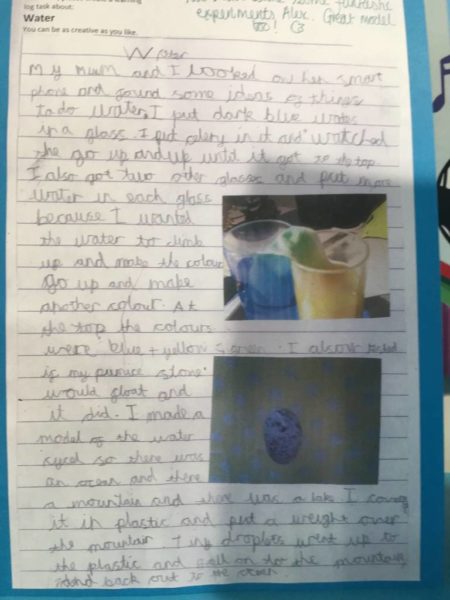 log task about:
Water
You can be as creative as you like.
experiments Alex. Great model
Water
My Mum and I looked on her smart
phone and found some ideas of things
to do water. I put dark blue water
in a glass. I put celery in it and watched
the go up and up until it got to the top.
I also got two other glasses and put more
water in each glass
because I wanted
the water to climb
up and make the colour
go up and make
another colour. At
the top the colours
were blue + yellow = green. I also tested
is my pumice stone
would float and
it did. I made a
model of the water
sycel so there was
an ocean and there
a mountain and there was a lake I
it in plastic and put a weight over
the mountain. Tiny droplets went up to
the plastic and fell on to the mountain,
and back out to the ocean